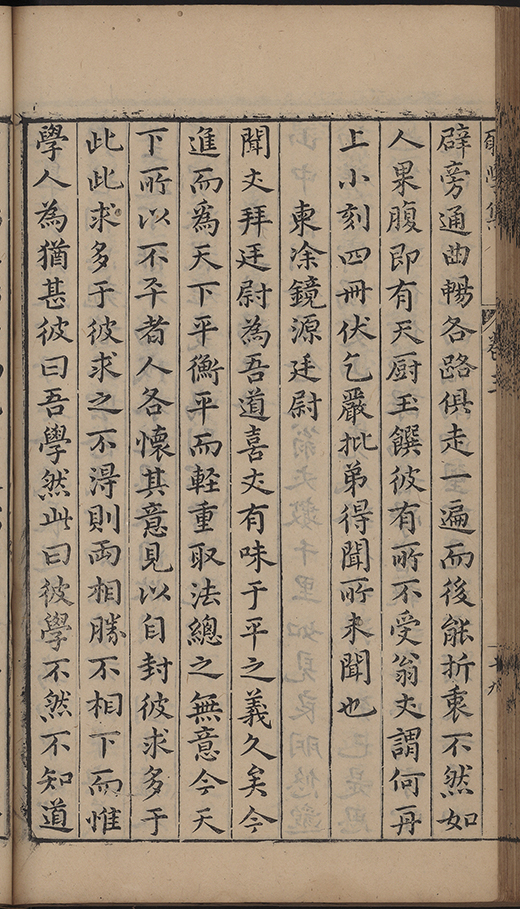 願學集 卷之三 十九
辟旁通曲暢各路俱走一遍而後能折衷不然如
人果腹即有天厨玉饌彼有所不受翁丈謂何再
上小刻四冊伏乞嚴批弟得聞所未聞也
柬凃鏡源廷尉
聞丈拜廷尉為吾道喜丈有味于平之義久矣今
進而爲天下平衡平而軽重取法緫之無意今天
下所以不平者人各懷其意見以自封彼求多于
此此求多于彼求之不淂則両相勝不相下而惟
學人為猶甚彼曰吾學然此曰彼學不然不知道